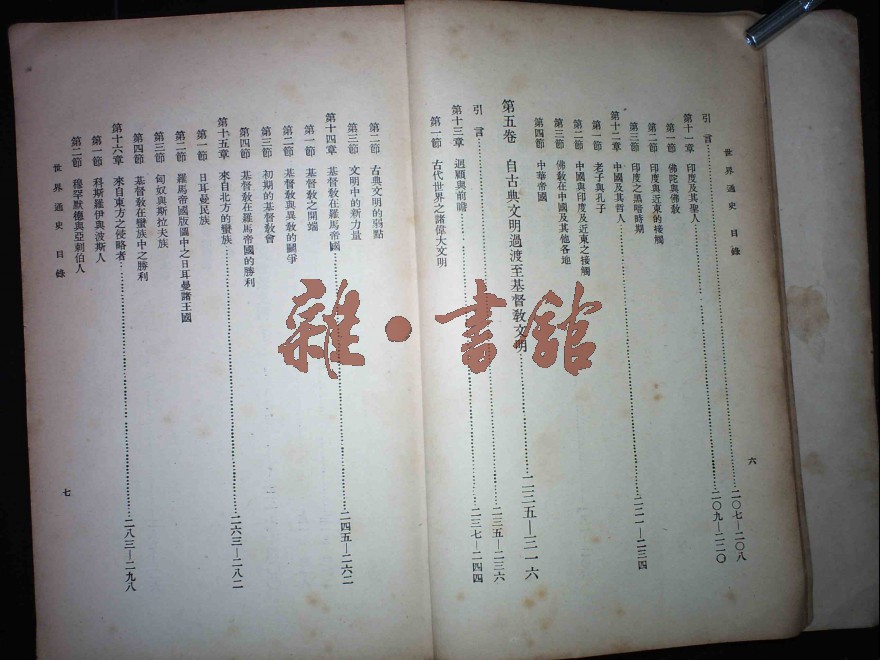 世界通史 目錄
六
引言 二〇七—二〇八
第十一章 印度及其聖人 二〇九—二二〇
第一節 佛陀與佛敎
第二節 印度與近東的接觸
第三節 印度之黑暗時期
第十二章 中國及其哲人 二二一—二三四
第一節 老子與孔子
第二節 中國與印度及近東之接觸
第三節 佛敎在中國及其他各地
第四節 中華帝國
第五卷 自古典文明過渡至基督敎文明 二三五—三一六
引言 二三五—二三六
第十三章 迴顧與前瞻 二三七—二四四
第一節 古代世界之諸偉大文明
第二節 古典文明的弱點
第三節 文明中的新力量
第十四章 基督敎在羅馬帝國 二四五—二六二
第一節 基督敎之開端
第二節 基督敎與異敎的鬭爭
第三節 初期的基督敎會
第四節 基督敎在羅馬帝國的勝利
第十五章 來自北方的蠻族 二六三—二八二
第一節 日耳曼民族
第二節 羅馬帝國版圖中之日耳曼諸王國
第三節 匈奴與斯拉夫族
第四節 基督敎在蠻族中之勝利
第十六章 來自東方之侵略者 二八三—二九八
第一節 科斯羅伊與波斯人
第二節 穆罕默德與亞剌伯人
世界通史 目錄
七
雜·書館